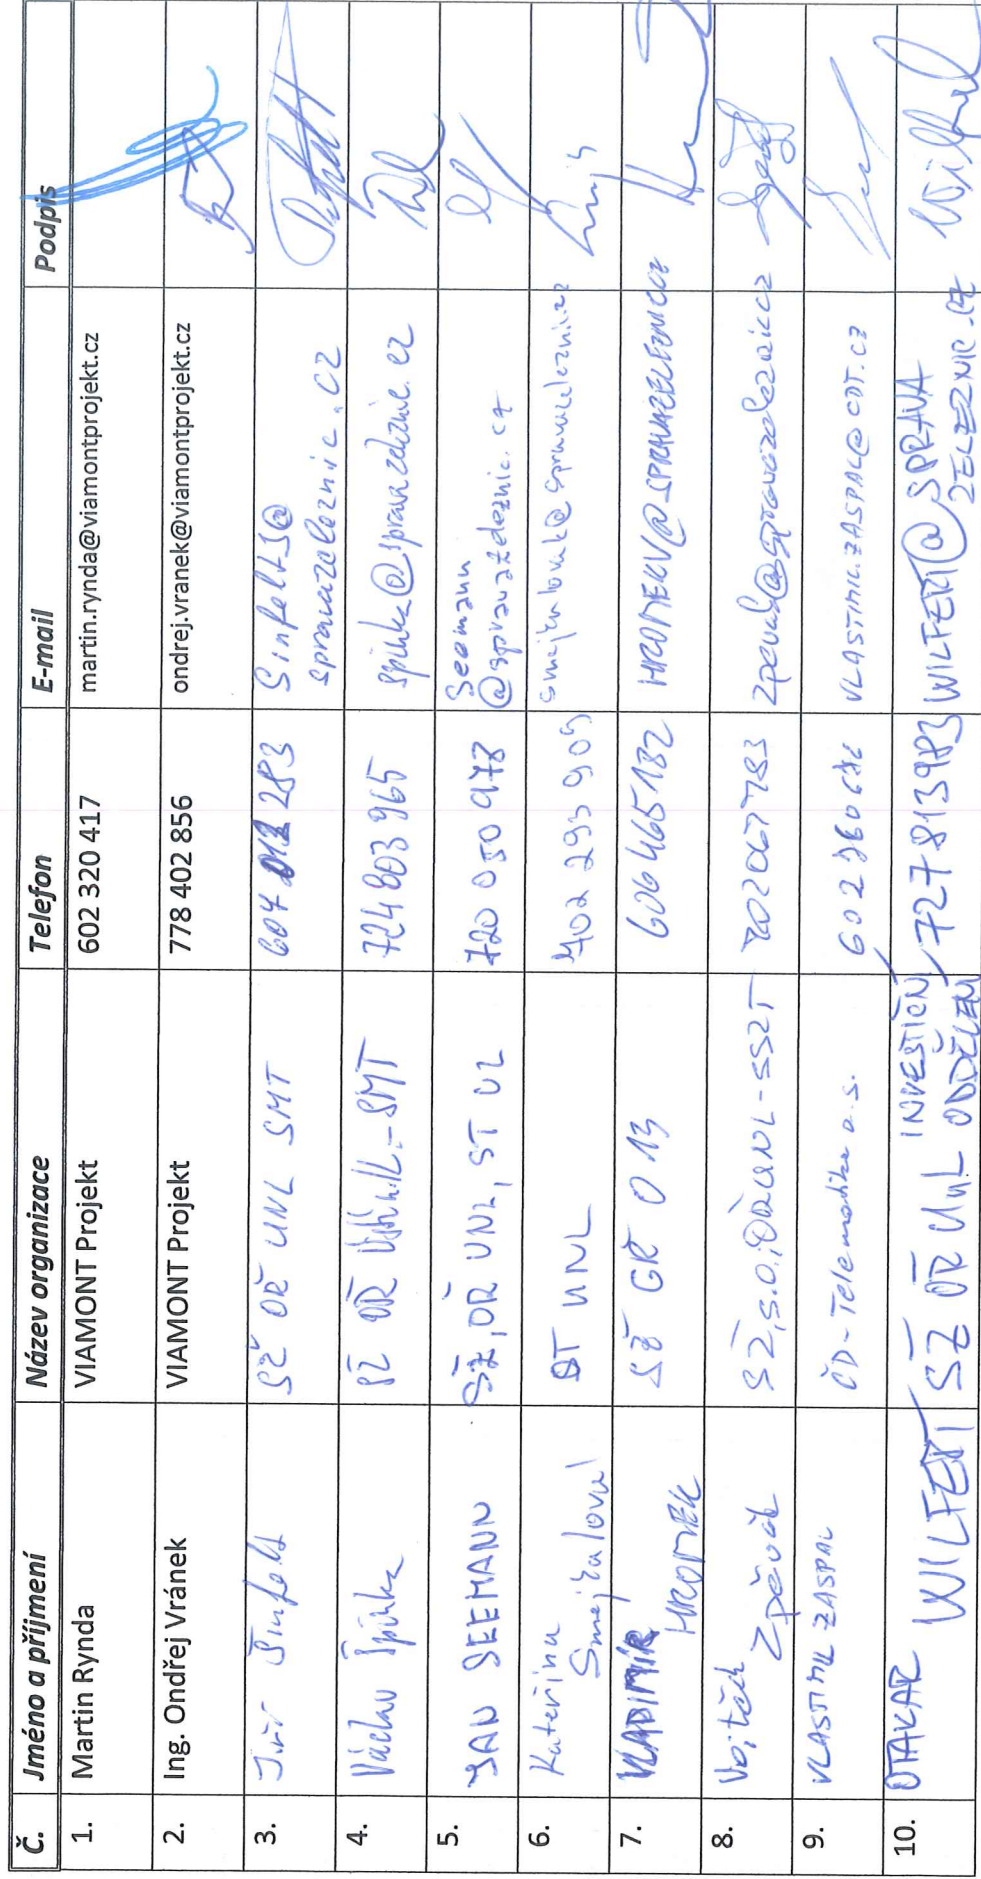 Č. Jméno a příjmení Název organizace Telefon E-mail Podpis
1. Martin Rynda VIAMONT Projekt 602 320 417 martin.rynda@viamontprojekt.cz
2. Ing. Ondřej Vránek VIAMONT Projekt 778 402 856 ondrej.vranek@viamontprojekt.cz
3. Jiří Šinfelt SŽ OŘ UNL SMT 607 283 Sinfelt@
spravazeleznic.cz
4. Václav Špinka SŽ OŘ Ústí n.L.-SMT 724 803 965 spinka@spravazeleznic.cz
5. JAN SEEMANN SŽ, OŘ UNL, ST UL 720 050 978 Seemann
@spravazeleznic.cz
6. Kateřina ST UNL 702 293 909 smejkalovak@spravazeleznic.cz
Smejkalová
7. VLADIMÍR SŽ GŘ O13 606465182 HROMEKV@SPRAVAZELEZNIC.CZ
HROMEK
8. Vojtěch SŽ, s.o., OŘ UNL-SSZT 702067783 zpevak@spravazeleznic.cz
Zpěvák
9. VLASTIMIL ZASPAL ČD-Telematika a.s. VLASTIMIL.ZASPAL@CDT.CZ
10. OTAKAR WILFERT SŽ OŘ UnL INVESTIČNÍ 727813983 WILFERT@SPRAVA
ODDĚLENÍ ZELEZNIC.CZ